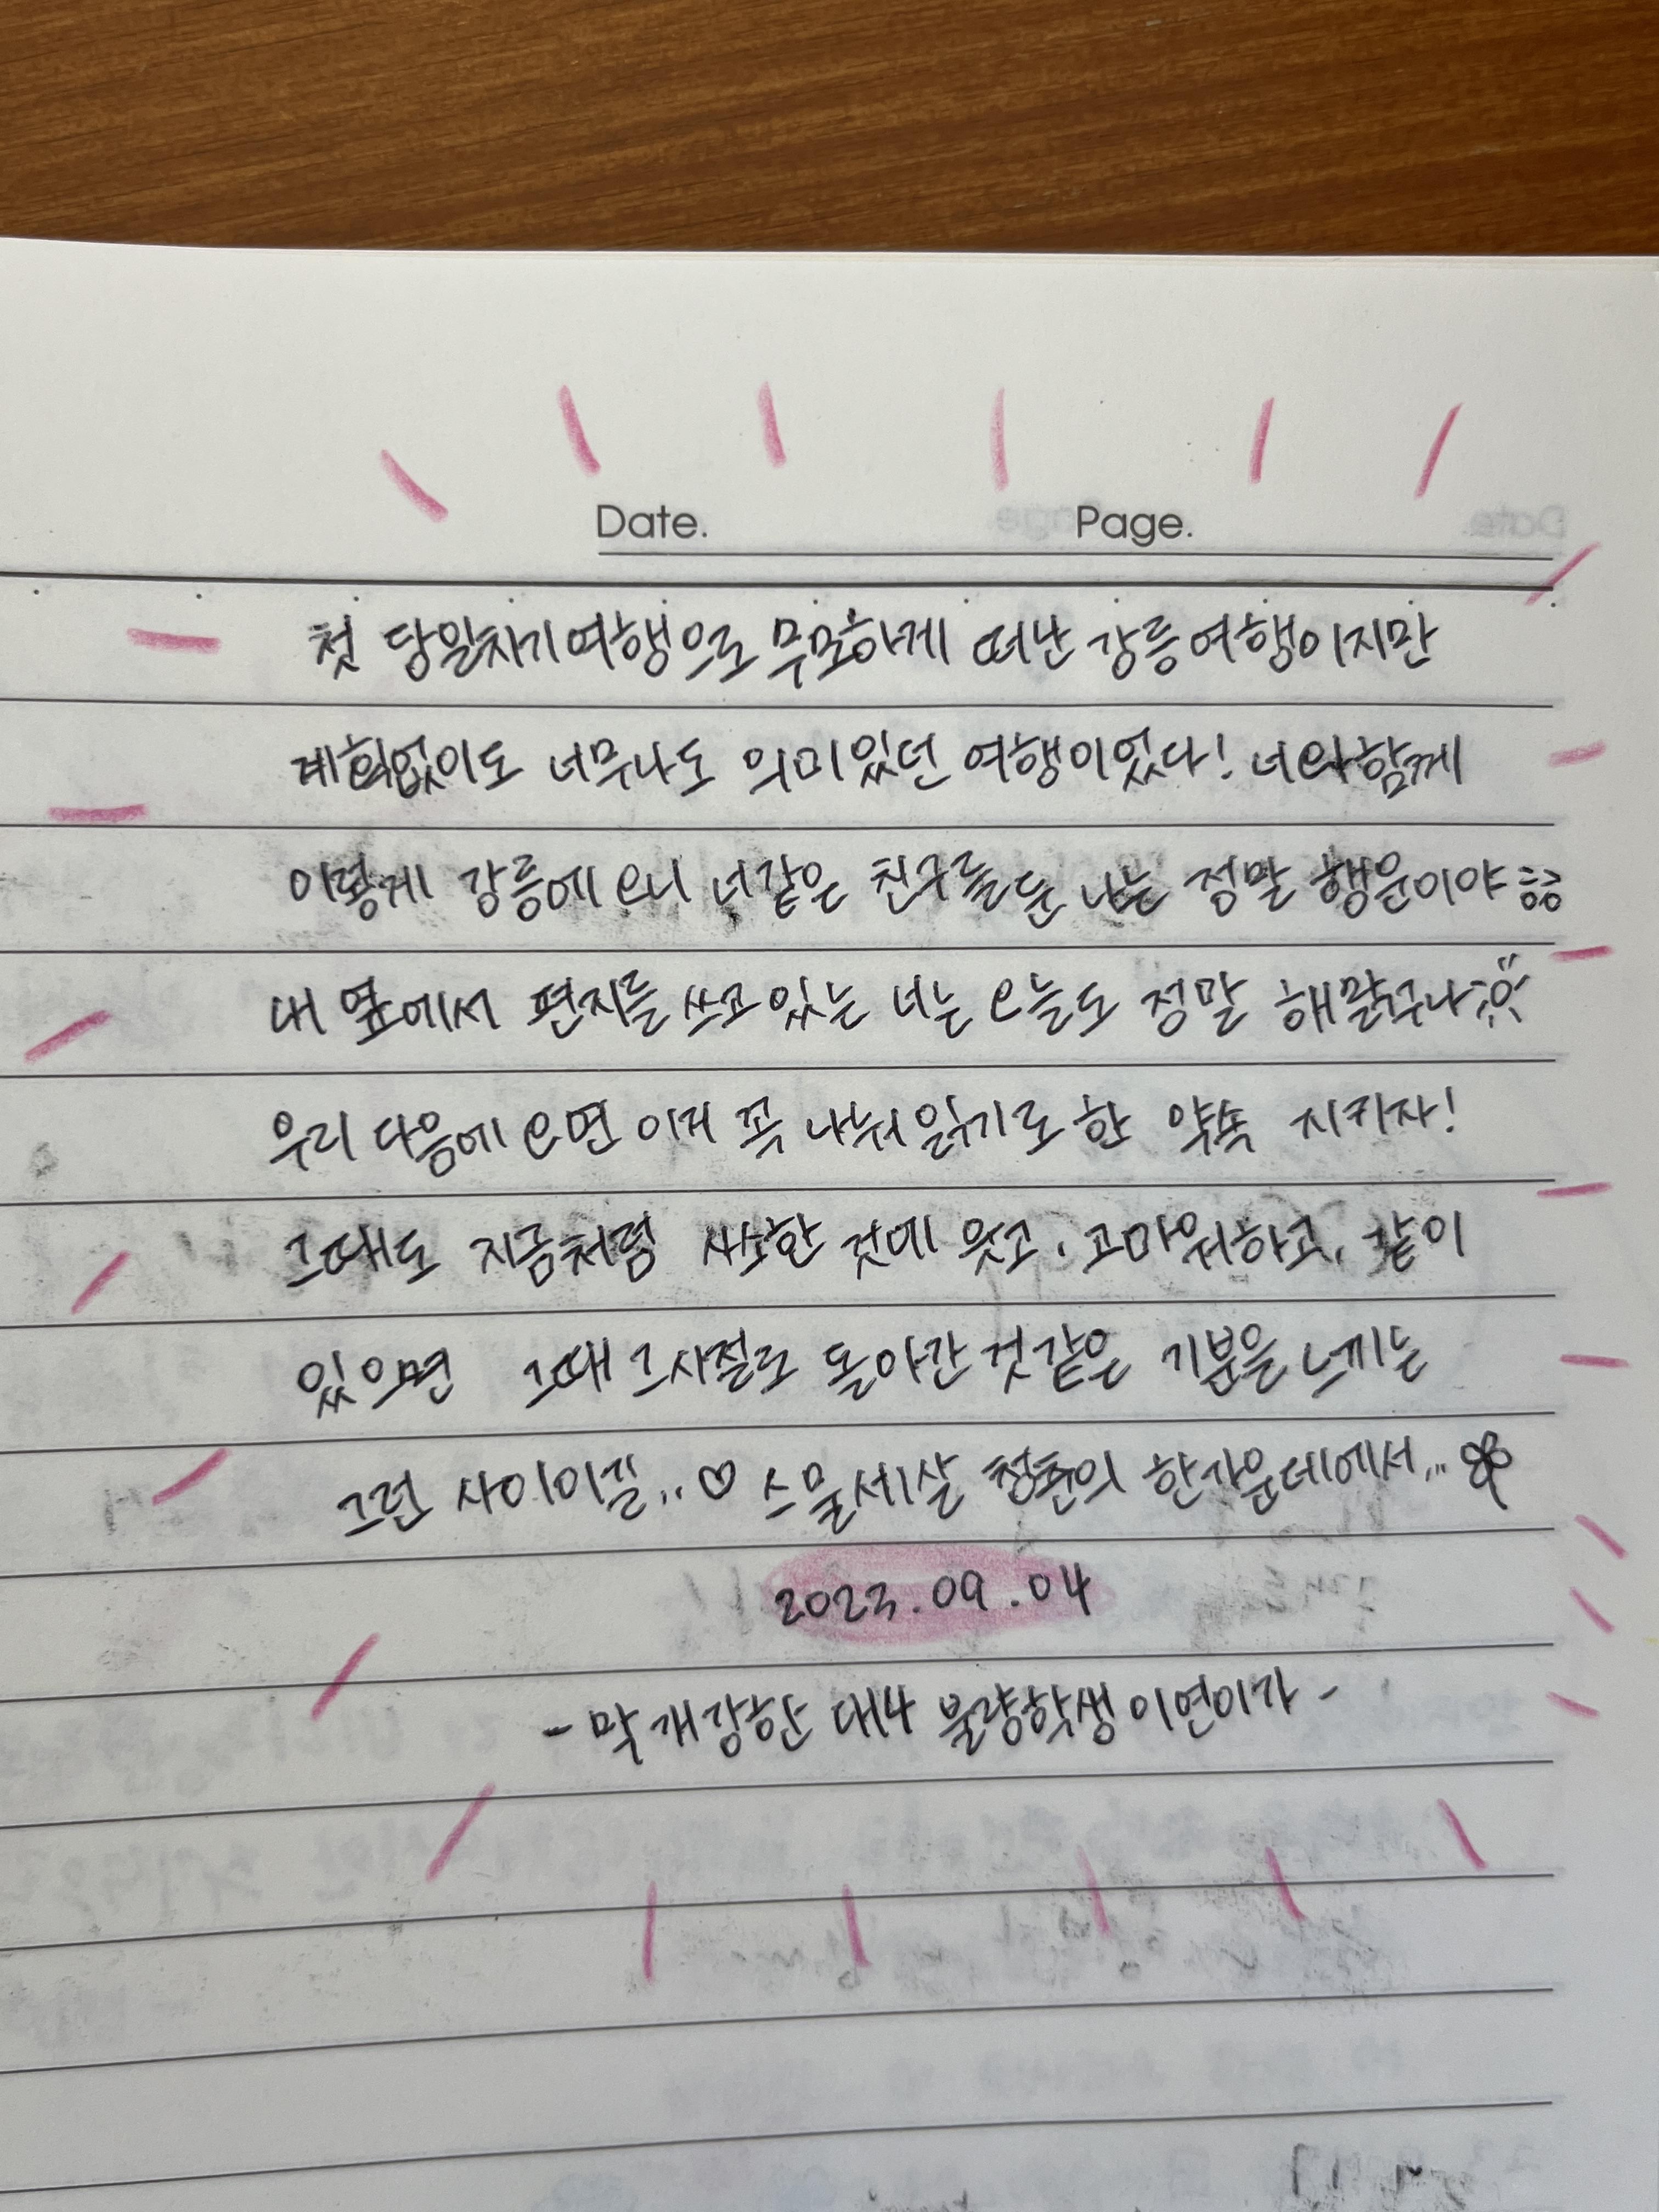 Date. Page.
첫 당일치기여행으로 무모하게 떠난 강릉여행이지만
계획없이도 너무나도 의미있던 여행이었다! 너와함께
이렇게 강릉에 오니 너같은 친구를 둔 나는 정말 행운이야
내 옆에서 편지를 쓰고있는 너는 오늘도 정말 해맑구나
우리 다음에 오면 이거 꼭 나눠읽기로 한 약속 지키자!
그때도 지금처럼 사소한 것에 웃고, 고마워하고, 같이
있으면 그때 그시절로 돌아간 것 같은 기분을 느끼는
그런 사이이길..♡ 스물세살 청춘의 한가운데에서...
2023.09.04
- 막 개강한 대4 불량학생 이연이가 -